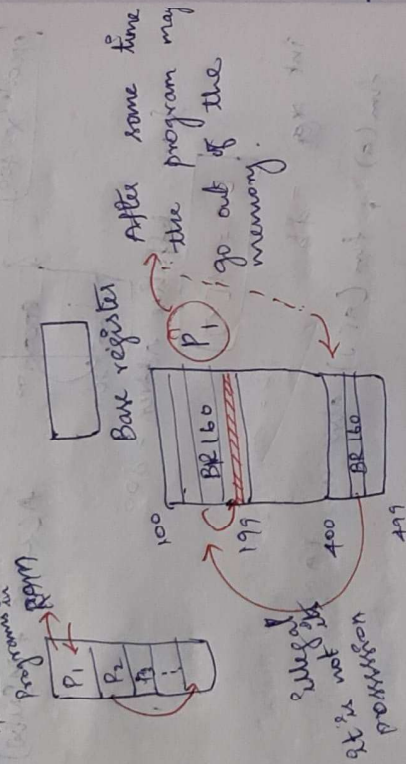 Programs in
RAM
P1
P2
P3
Base register
100
BR 160
199
400
BR 160
499
P1
After some time
the program may
go out of the
memory.
Illegal
It is not its
possession